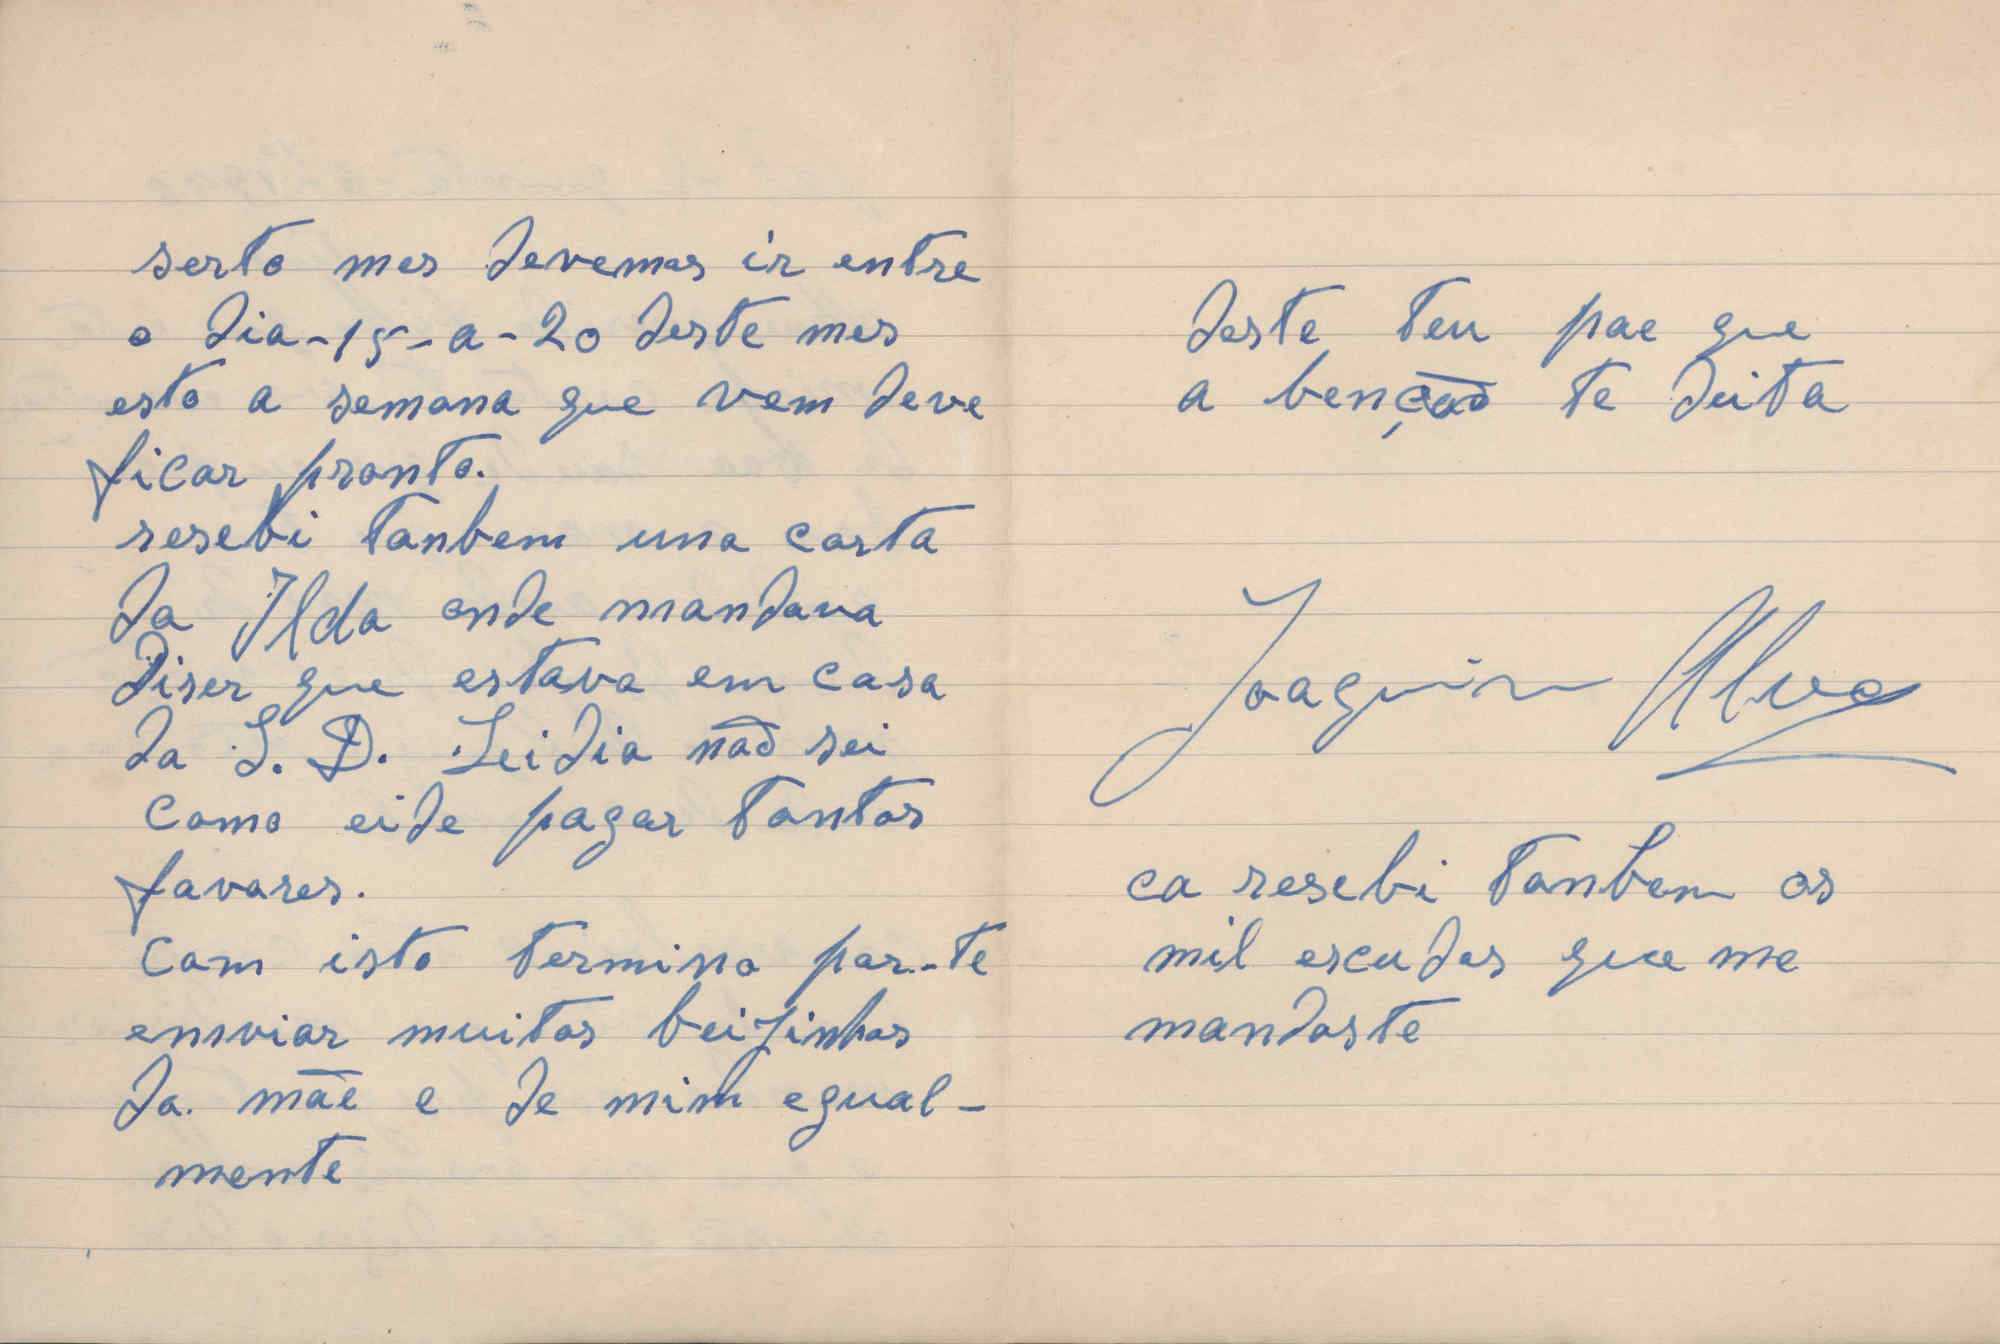 serto mes devemos ir entre
o dia-15-a-20 deste mes
esto a semana que vem deve
ficar pronto.
resebi tanbem una carta
da Ilda onde mandava
diser que estava em casa
da S. D. Leidia não sei
como eide pagar tantos
favores.
com isto termino por-te
emviar muitos beijinhos
da. mãe e de mim egual-
mente
deste teu pae que
a benção te deita
Joaquim Alves
ca resebi tanbem os
mil escudos que me
mandoste